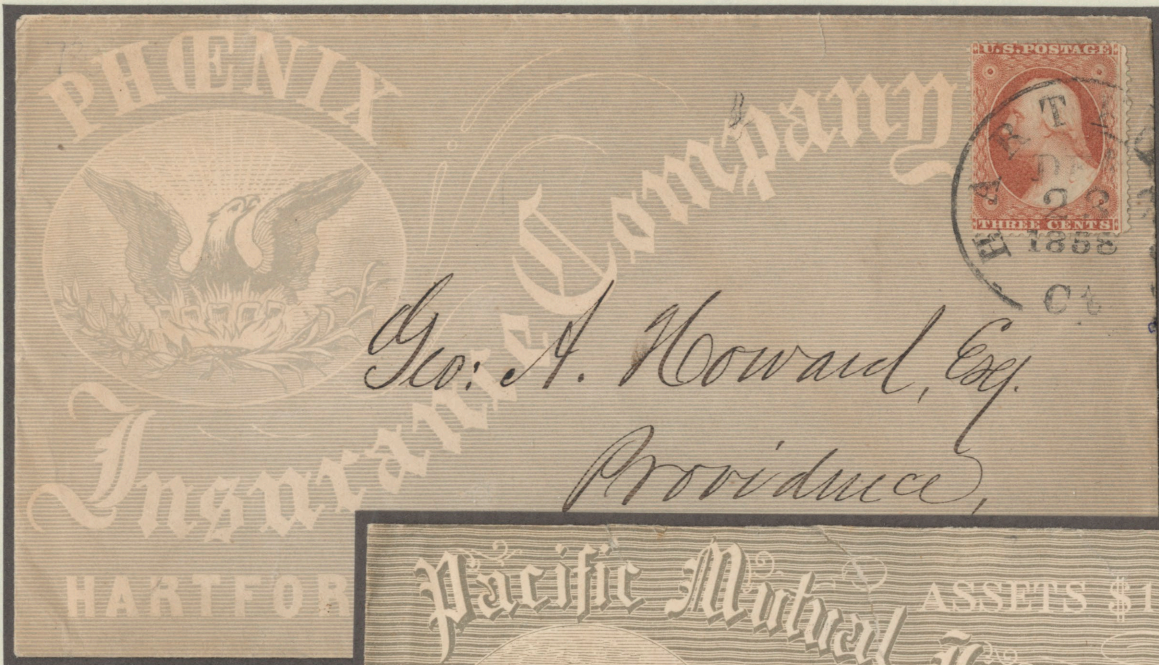 PHŒNIX
Insurance Company
HARTFOR
U.S. POSTAGE
THREE CENTS
HARTFO
DEC
1858
Ct
Geo: A. Howard, Esq.
Providence,
Pacific Mutual
ASSETS $1